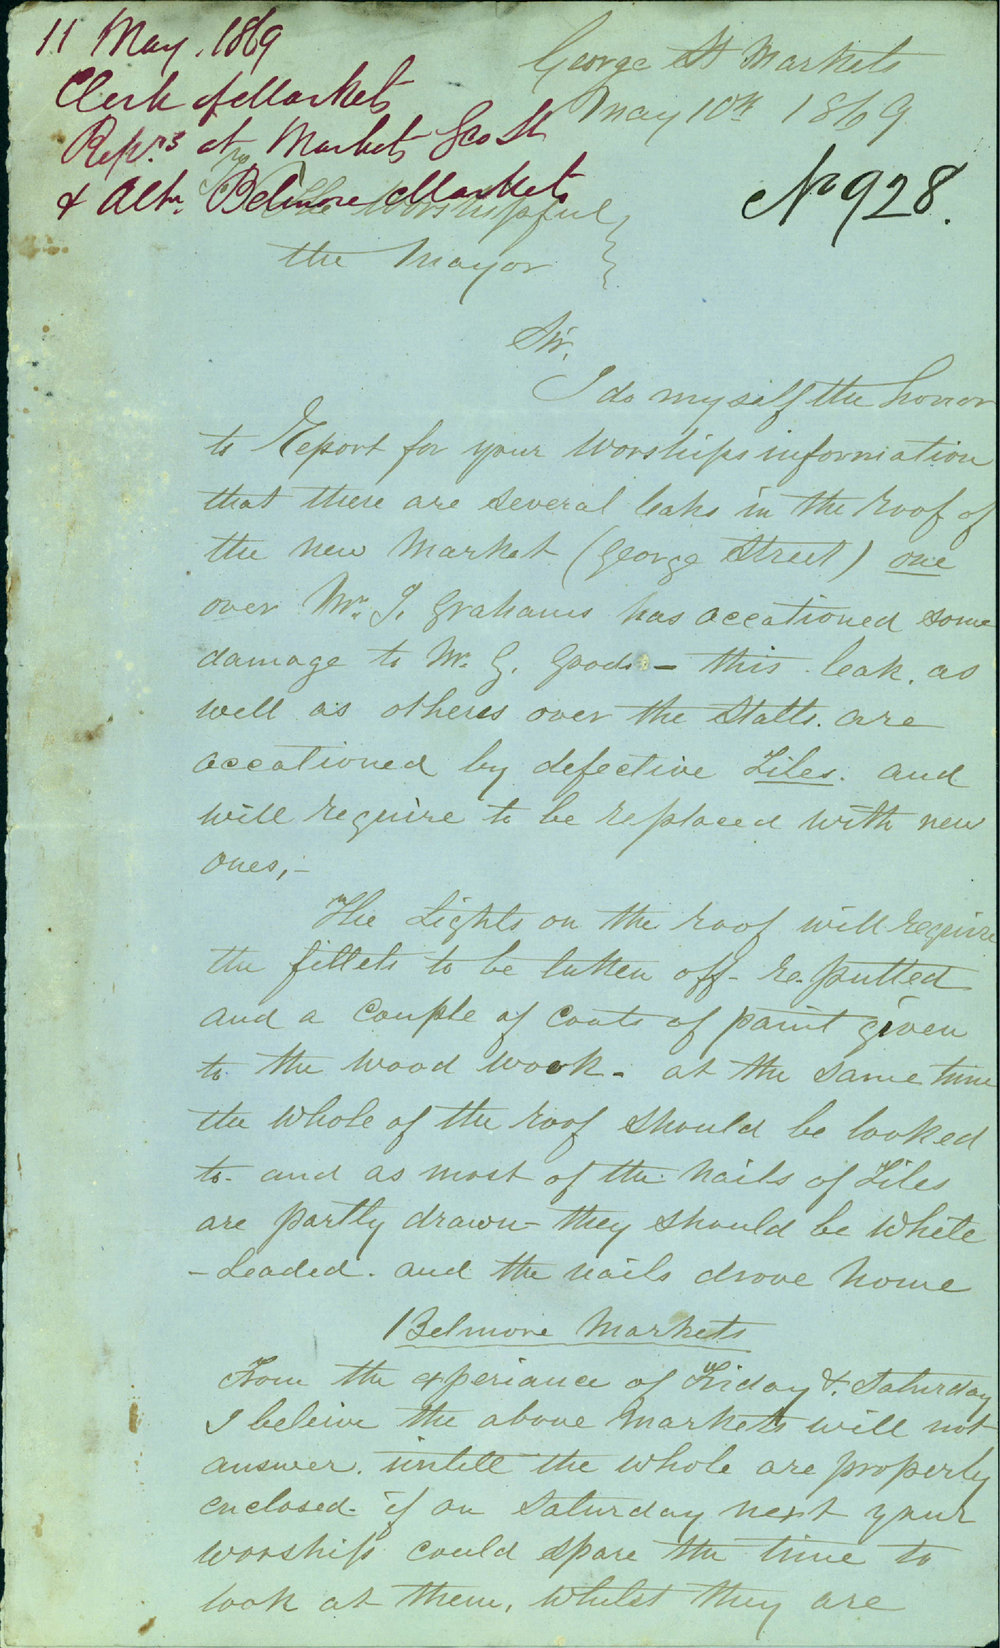 11 May. 1869
Clerk of Markets
Rep.rs at Markets Geo St
& Altn. Belmore Markets
George St Markets
May 10th 1869
No 928.
To
The Worshipful
the Mayor
Sir.
I do myself the honor
to Report for your Worships information
that there are several leaks in the roof of
the new Market (George Street) one
over Mr. J. Grahams has occationed some
damage to Mr. G. Goods - this leak. as
well as otheres over the Stalls. are
occationed by defective Tiles. and
will require to be replaced with new
ones,-
The Lights on the roof will require
the fillets to be takken off - re-putted
and a couple of coats of paint given
to the wood work - at the same time
the whole of the roof should be looked
to - and as most of the nails of Tiles
are partly drawn - they should be White
- Leaded. and the nails drove home
Belmore Markets
From the experiance of Friday & Saturday
I beleive the above Markets will not
answer. untell the whole are properly
enclosed - if on Saturday next your
worship could spare the time to
look at them, whilst they are